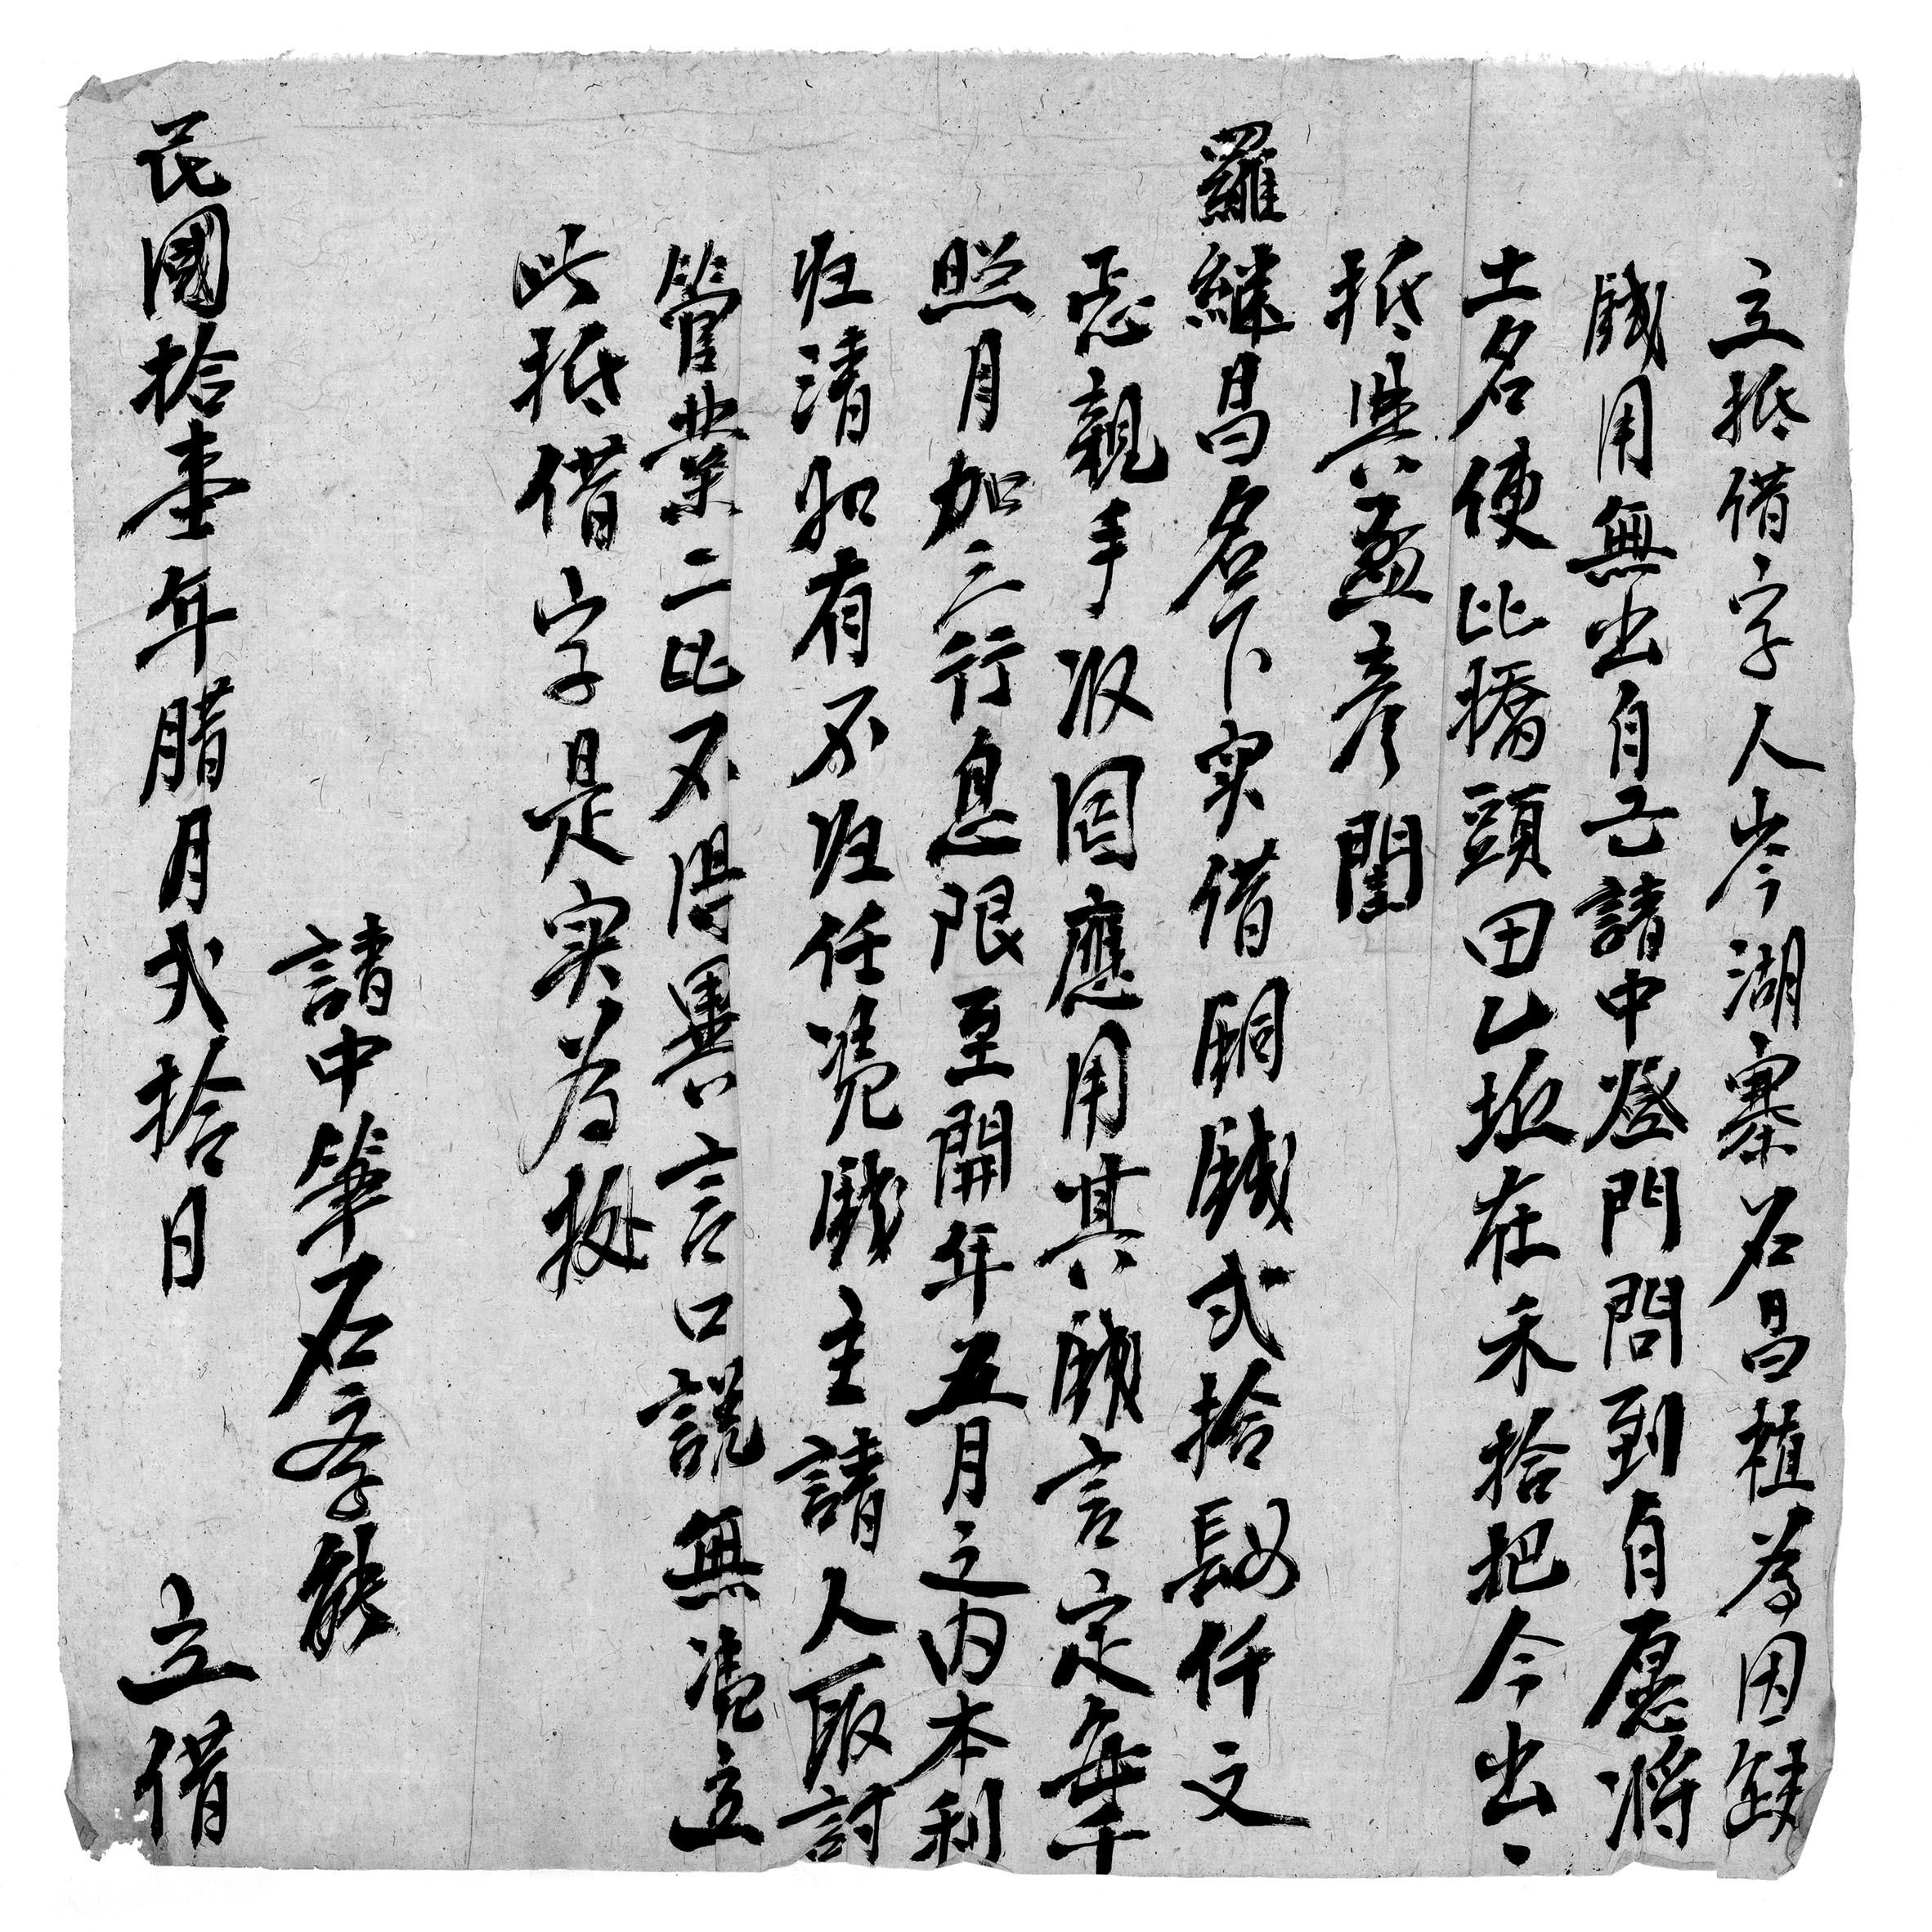 立抵借字人岑湖寨石昌植為因缺
錢用無出自己請中登門問到自愿將
土名使比橋頭田乙坵在禾拾把今出、
抵與孟彦閨
羅繼昌名下实借銅錢弍拾 仟文
悉親手收囬應用其錢言定每千
照月加三行息限至開年五月之内本利
归清如有不归任凴錢主請人耕討
管業二比不得異言口説無凴立
此抵借字是实为
請中筆石 能
民國拾壹年腊月弍拾日 立借